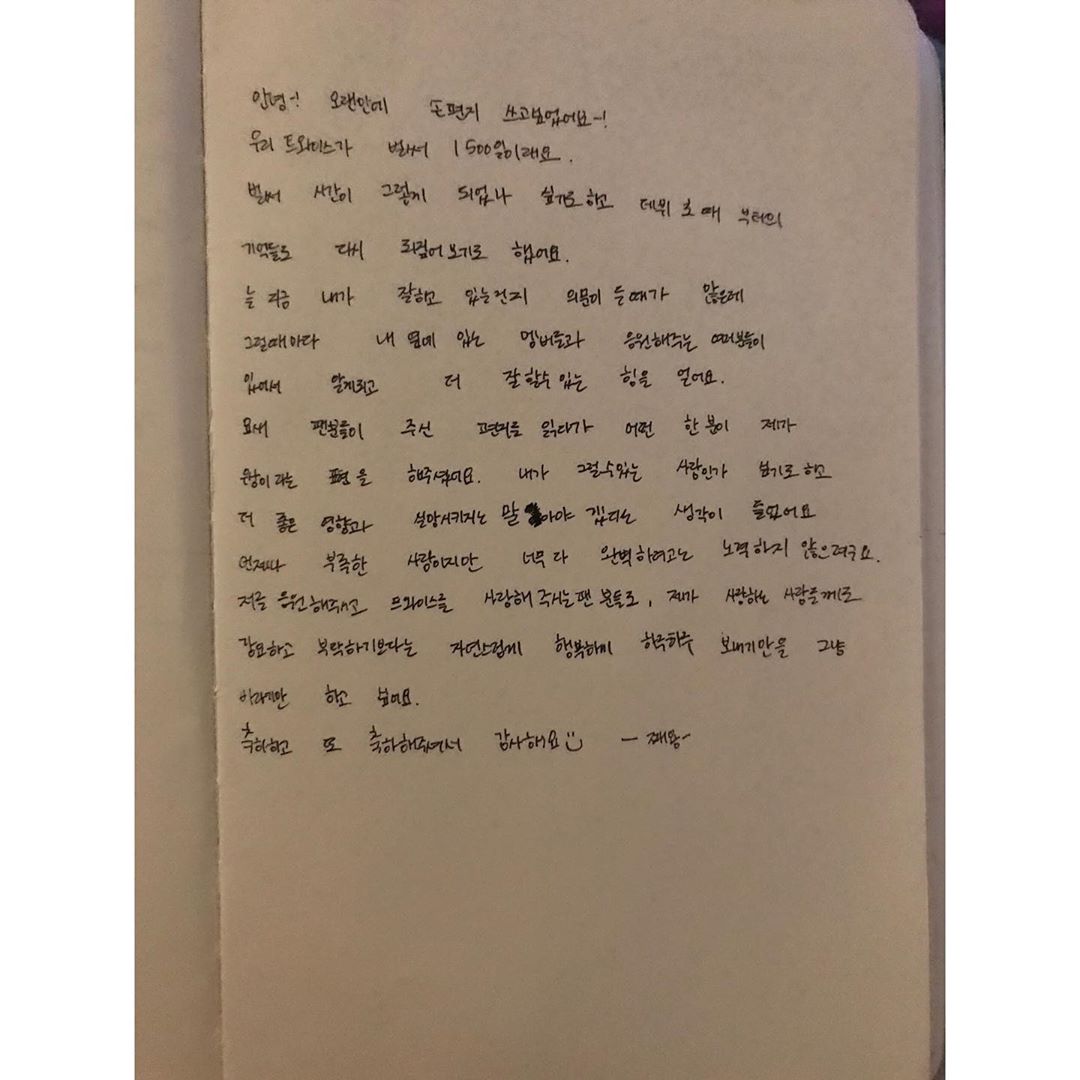 안녕~! 오랜만에 손편지 쓰고싶었어요~!
우리 트와이스가 벌써 1500일이래요.
벌써 시간이 그렇게 되었나 싶기도 하고 데뷔 초 때 부터의
기억들로 다시 되짚어 보기도 했어요.
늘 지금 내가 잘하고 있는건지 의문이 들때가 많은데
그럴때 마다 내 옆에 있는 멤버들과 응원해주는 여러분들이
있어서 알게되고 더 잘 할수 있는 힘을 얻어요.
요새 팬분들이 주신 편지를 읽다가 어떤 한 분이 제가
희망이 라는 표현을 해주셨어요. 내가 그럴수있는 사람인가 싶기도 하고
더 좋은 영향과 실망시키지는 말아야 겠다는 생각이 들었어요
언제나 부족한 사람이지만 너무 다 완벽하려고는 노력하지 않으려구요.
저를 응원해주시고 트와이스를 사랑해 주시는 팬 분들도, 제가 사랑하는 사람들께도
강요하고 부탁하기보다는 자연스럽게 행복하게 하루하루 보내기만을 그냥
바라기만 하고 싶어요.
축하하고 또 축하해주셔서 감사해요 — 째용~